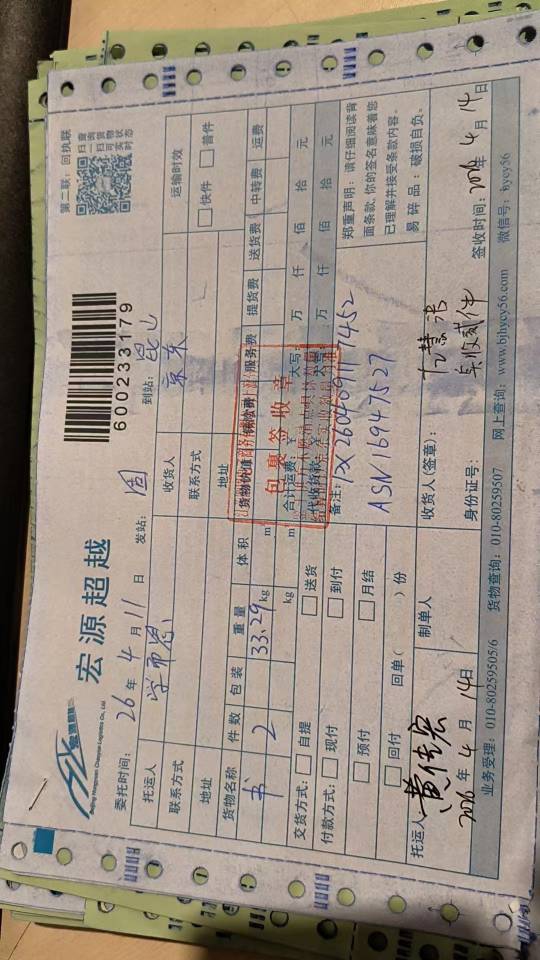 第二联：回执联
扫一扫
查询货
物实时
状态
宏源超越
Beijing Hongyuan Chaoyue Logistics Co., Ltd
600233179
委托时间：26年4月11日
发站：固
到站：昆山
托运人
学而思
收货人
京东
运输时效
联系方式
联系方式
快件
普件
地址
地址
货物名称
件数
包装
重量
体积
货物价值
服务费
提货费
送货费
中转费
运费
书
2
33.29
kg
m
kg
m
交货方式：
自提
送货
合计运费：
大写：
万
仟
佰
拾
元
付款方式：
现付
到付
代收货款：
万
仟
佰
拾
元
预付
月结
备注：
回付
回单（
）份
ASN16947527
包裹签收章
郑重声明：请仔细阅读背
面条款，你的签名意味着您
已理解并接受条款内容。
易碎品：破损自负。
托运人
黄传宏
制单人
收货人(签章)：
2026年4月14日
身份证号：
实收贰件
签收时间：2026年4月14日
业务受理：010-80259505/6
货物查询：010-80259507
网上查询：www.bjhycy56.com
微信号：hycy56